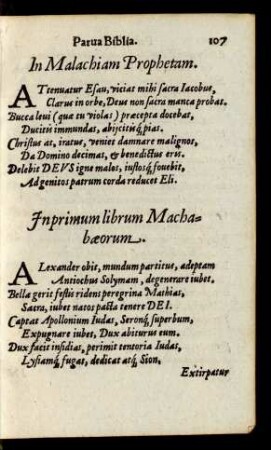 Parua Biblia. 107
In Malachiam Prophetam.
ATtenuatur Esau, vicias mihi sacra Iacobus,
Clarus in orbe, Deus non sacra manca probat.
Bucca leui (quæ tu violas) præcepta docebat,
Ducitis immundas, abijcitúq; pias.
Christus at, iratus, venies damnare malignos,
Da Domino decimas, & benedictus eris.
Delebit DEVS igne malos, iustosq́; fouebit,
Ad genitos patrum corda reducet Eli.
Inprimum librum Macha-
bæorum.
ALexander obit, mundum partitur, adeptam
Antiochus Solymam, degenerare iubet.
Bella gerit festis ridens peregrina Mathias,
Sacra, iubet natos pacta tenere DEI.
Captat Apollonium Iudas, Seronq́; superbum,
Expugnare iubet, Dux abiturus eum.
Dux facit insidias, perimit tentoria Iudas,
Lysiamq́; fugat, dedicat atq́; Sion,
Extirpatur